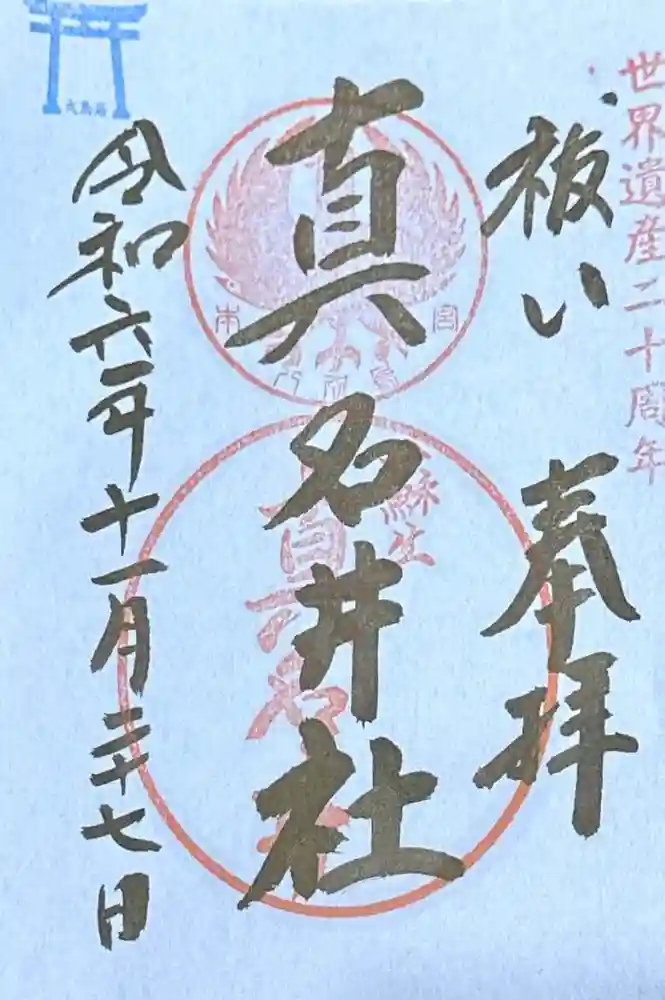 世界遺産二十周年
祓い 奉拝
真名井社
蘇生
真名井
本宮
令和六年十一月二十七日
大鳥居